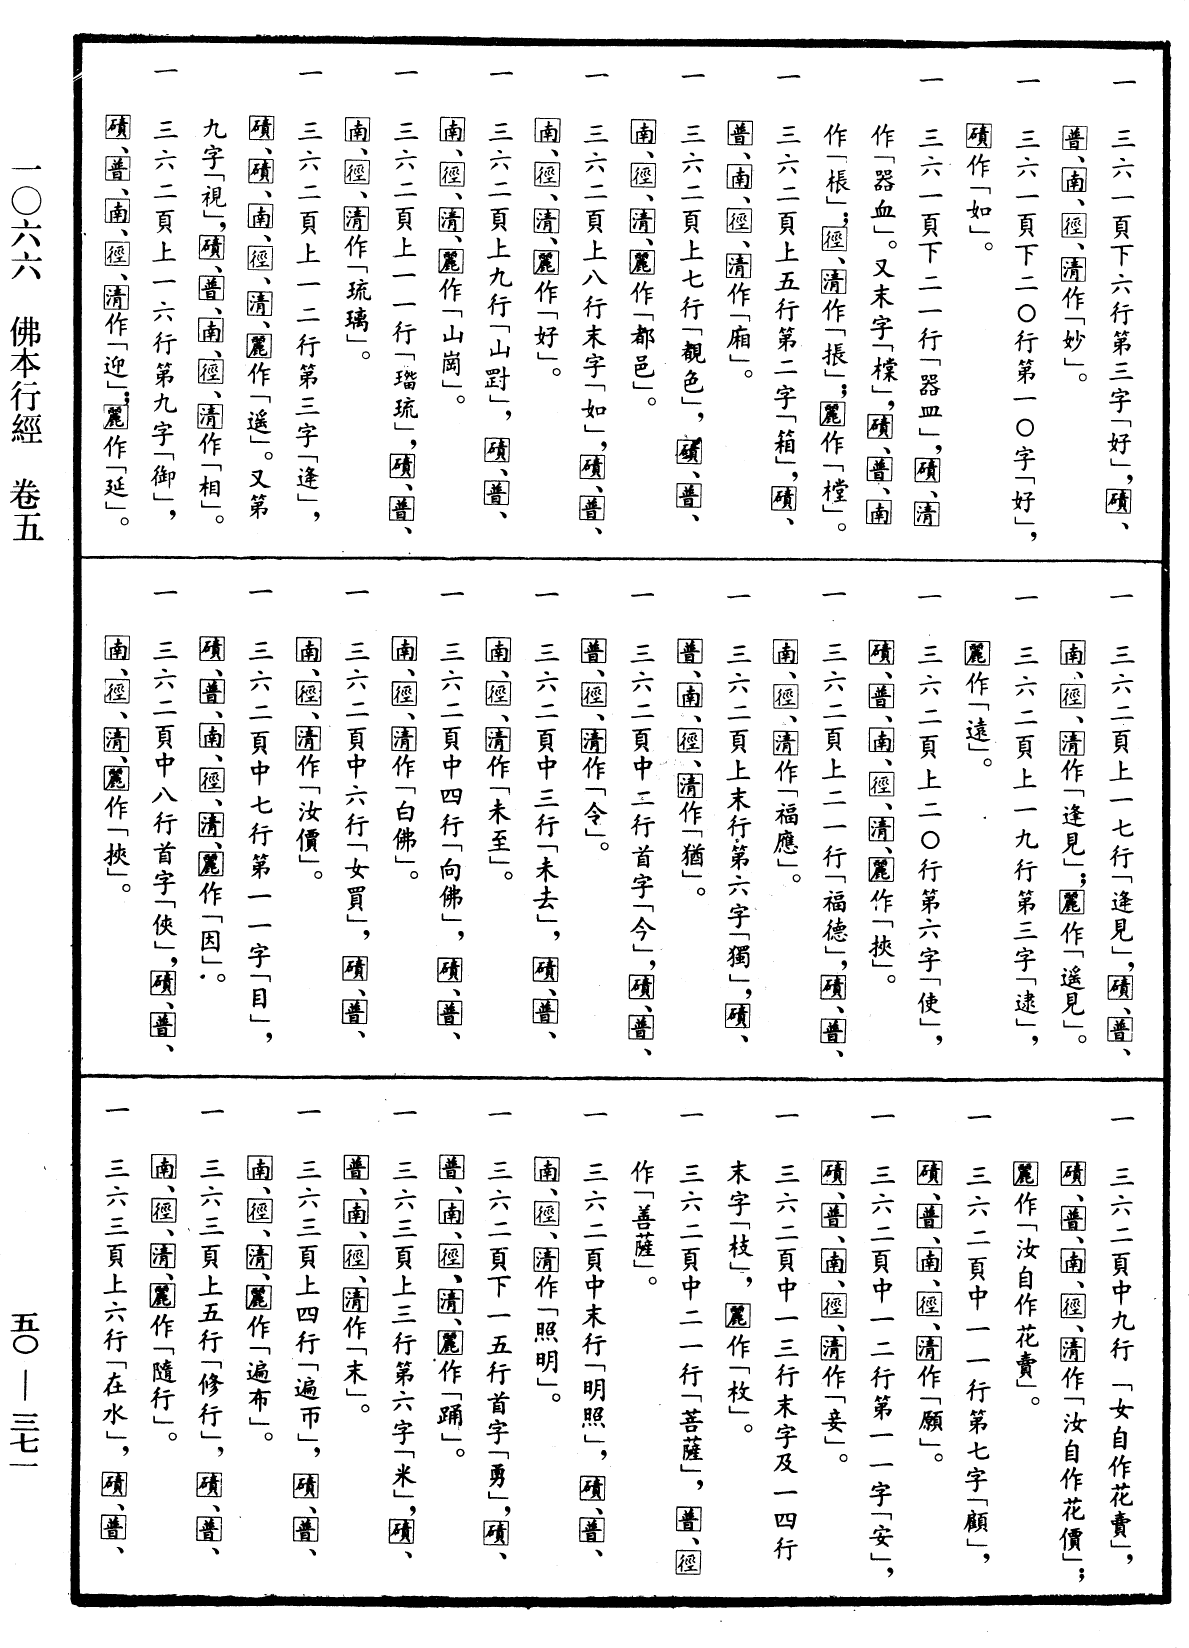 一 三六一頁下六行第三字「好」，磧、
普、南、徑、清作「妙」。
一 三六一頁下二〇行第一〇字「好」，
磧作「如」。
一 三六一頁下二一行「器皿」，磧、清
作「器血」。又末字「橖」，磧、普、南
作「棖」；徑、清作「掁」；麗作「樘」。
一 三六二頁上五行第二字「箱」，磧、
普、南、徑、清作「廂」。
一 三六二頁上七行「覩色」，磧、普、
南、徑、清、麗作「都邑」。
一 三六二頁上八行末字「如」，磧、普、
南、徑、清、麗作「好」。
一 三六二頁上九行「山㟳」，磧、普、
南、徑、清、麗作「山崗」。
一 三六二頁上一一行「瑠琉」，磧、普、
南、徑、清作「琉璃」。
一 三六二頁上一二行第三字「逢」，
磧、磧、南、徑、清、麗作「遥」。又第
九字「視」，磧、普、南、徑、清作「相」。
一 三六二頁上一六行第九字「御」，
磧、普、南、徑、清作「迎」；麗作「延」。
一 三六二頁上一七行「逢見」，磧、普、
南、徑、清作「逢見」；麗作「遥見」。
一 三六二頁上一九行第三字「逮」，
麗作「遠」。
一 三六二頁上二〇行第六字「使」，
磧、普、南、徑、清、麗作「挾」。
一 三六二頁上二一行「福德」，磧、普、
南、徑、清作「福應」。
一 三六二頁上末行第六字「獨」，磧、
普、南、徑、清作「猶」。
一 三六二頁中二行首字「今」，磧、普、
普、徑、清作「令」。
一 三六二頁中三行「未去」，磧、普、
南、徑、清作「未至」。
一 三六二頁中四行「向佛」，磧、普、
南、徑、清作「白佛」。
一 三六二頁中六行「女買」，磧、普、
南、徑、清作「汝價」。
一 三六二頁中七行第一一字「目」，
磧、普、南、徑、清、麗作「因」。
一 三六二頁中八行首字「俠」，磧、普、
南、徑、清、麗作「挾」。
一 三六二頁中九行「女自作花賣」，
磧、普、南、徑、清作「汝自作花價」；
麗作「汝自作花賣」。
一 三六二頁中一一行第七字「顧」，
磧、普、南、徑、清作「願」。
一 三六二頁中一二行第一一字「安」，
磧、普、南、徑、清作「妾」。
一 三六二頁中一三行末字及一四行
末字「枝」，麗作「枚」。
一 三六二頁中二一行「菩薩」，普、徑
作「善薩」。
一 三六二頁中末行「明照」，磧、普、
南、徑、清作「照明」。
一 三六二頁下一五行首字「勇」，磧、
普、南、徑、清、麗作「踊」。
一 三六三頁上三行第六字「米」，磧、
普、南、徑、清作「末」。
一 三六三頁上四行「遍帀」，磧、普、
南、徑、清、麗作「遍布」。
一 三六三頁上五行「修行」，磧、普、
南、徑、清、麗作「隨行」。
一 三六三頁上六行「在水」，磧、普、
一〇六六 佛本行經 卷五
五〇—三七一